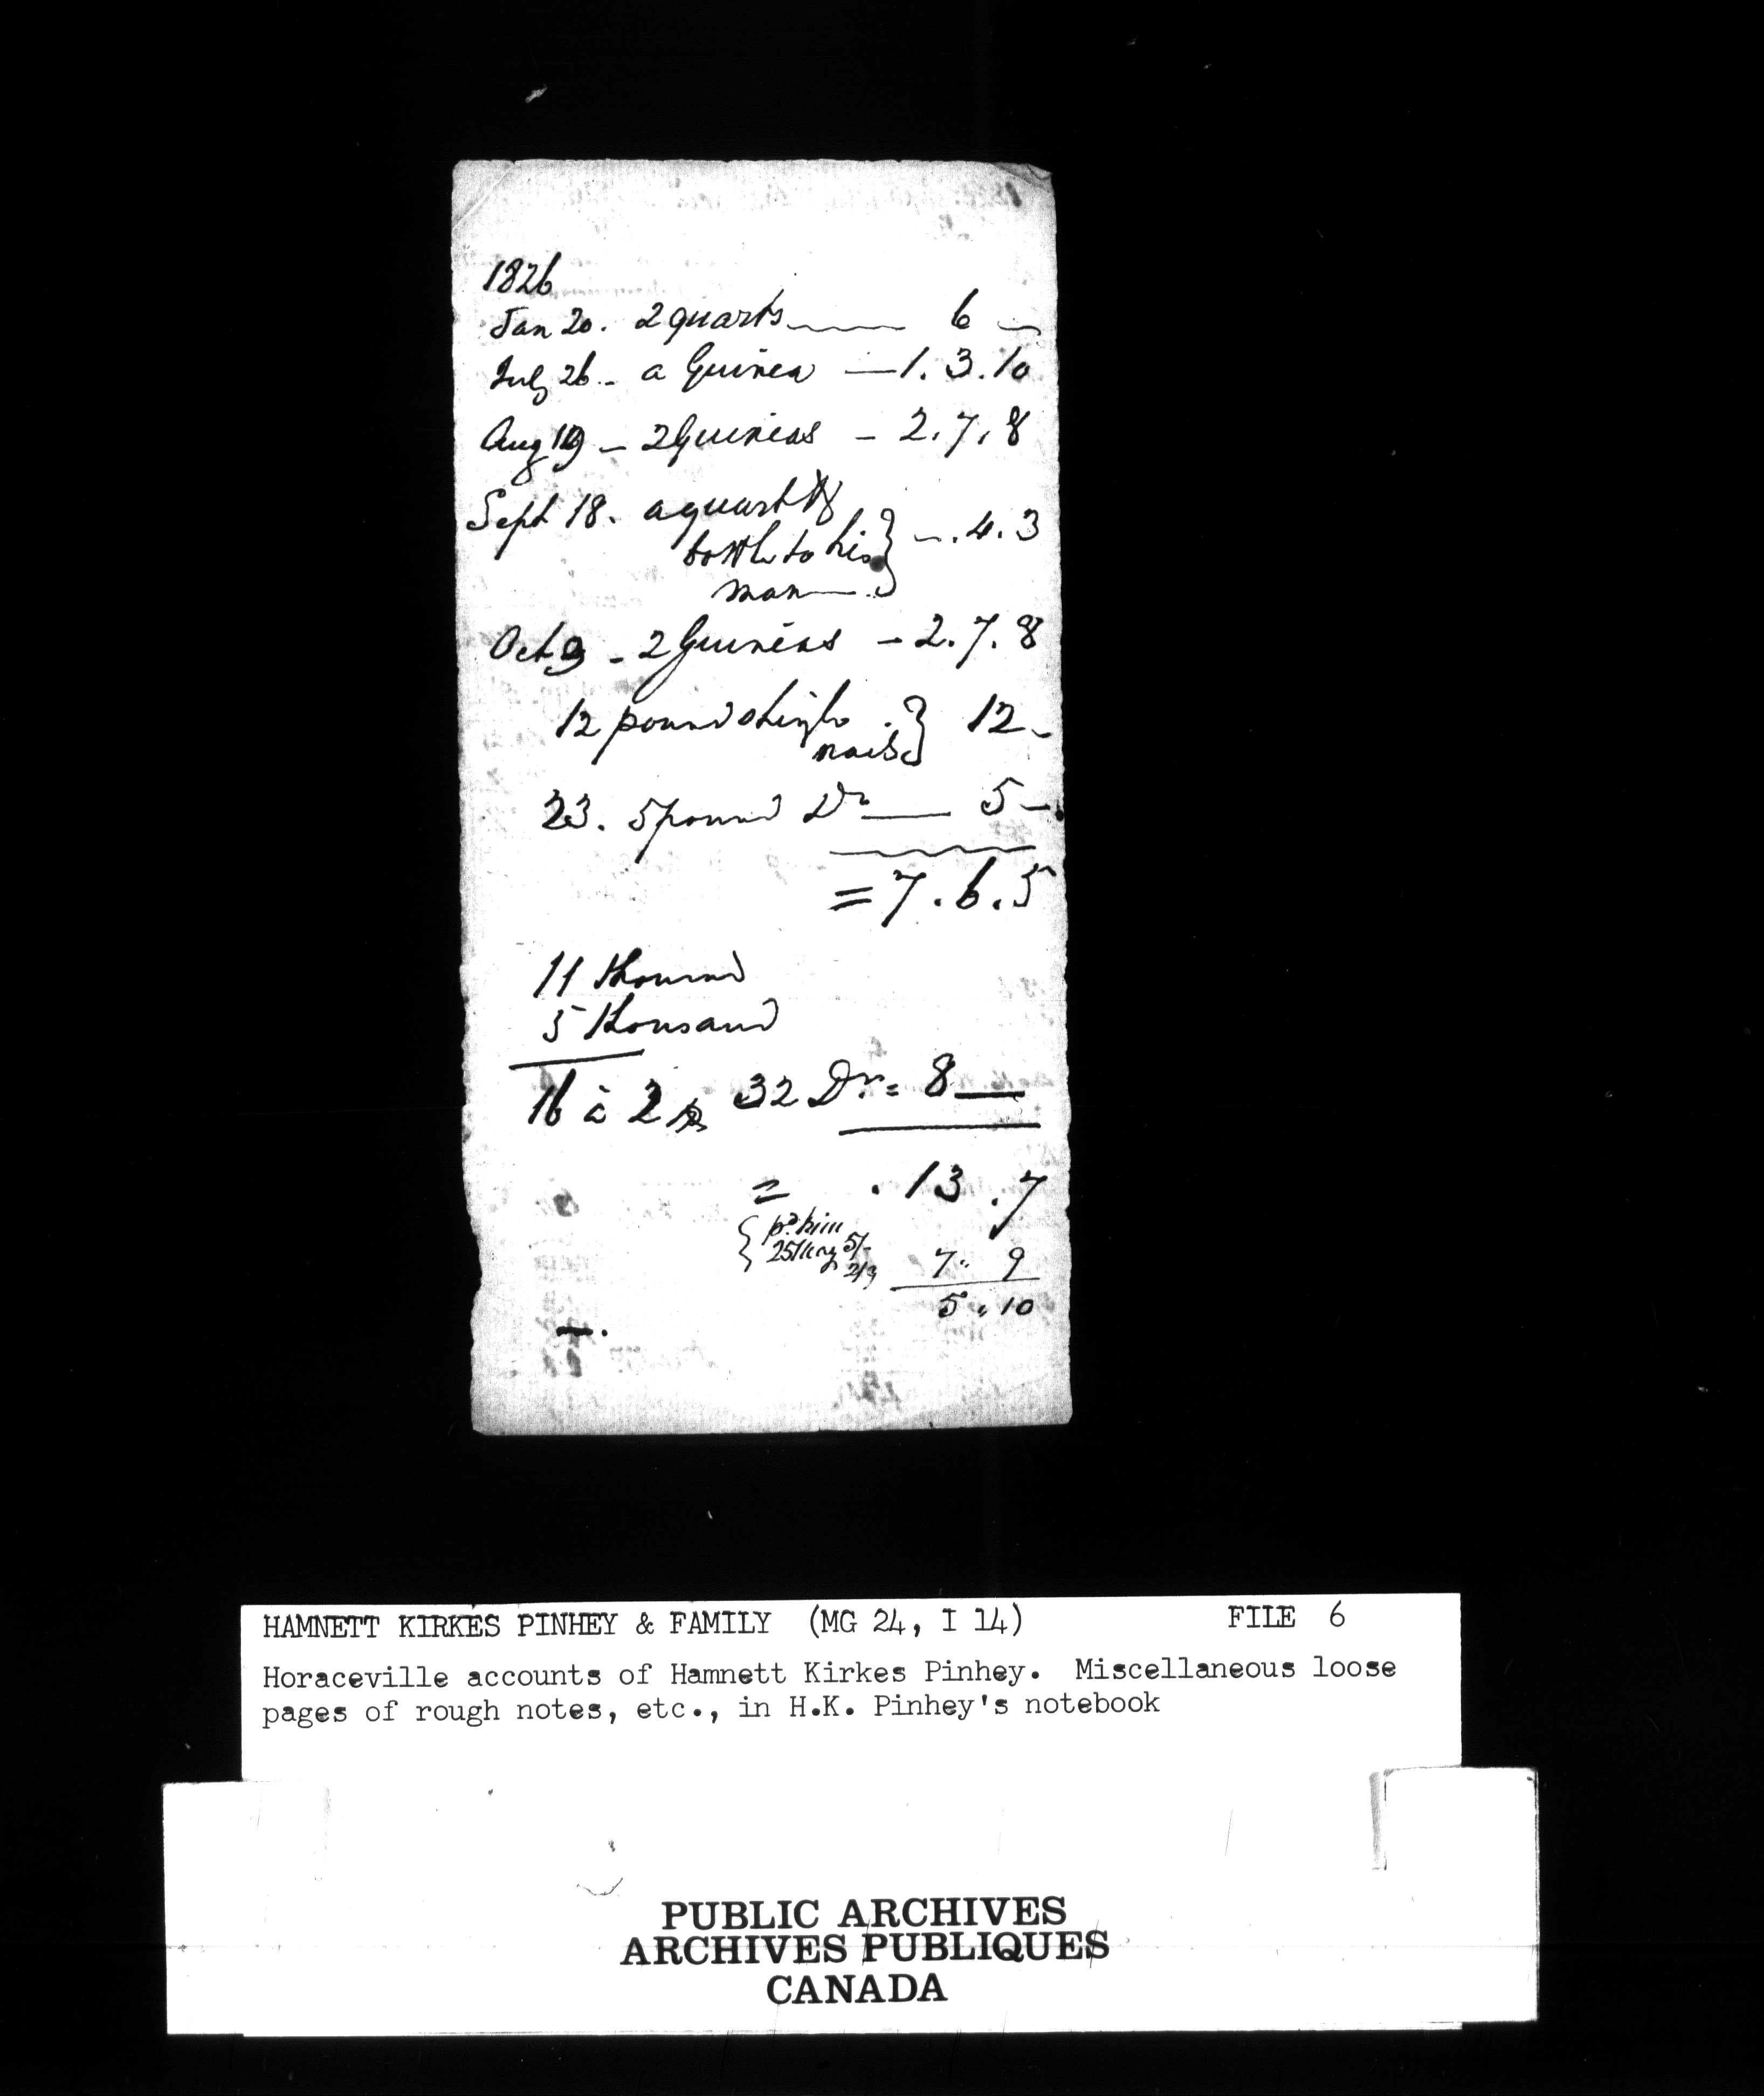 1826
Jan 20. 2 quarts — 6 —
July 26 - a Guinea — 1. 3. 10
Aug 19 - 2 Guineas - 2. 7. 8
Sept 18. a quart &
bottle to his } - . 4. 3
man —
Oct 9 - 2 Guineas - 2. 7. 8
12 pound shingle . } 12 -
nails
23. 5 pound Do — 5 -
= 7. 6. 5
11 thousand
5 thousand
16 à 2 32 Drs = 8 —
= . 13 . 7
{ pd. him
25 May 5/-
2/9 7 " 9
5 " 10
HAMNETT KIRKES PINHEY & FAMILY (MG 24, I 14) FILE 6
Horaceville accounts of Hamnett Kirkes Pinhey. Miscellaneous loose
pages of rough notes, etc., in H.K. Pinhey's notebook
PUBLIC ARCHIVES
ARCHIVES PUBLIQUES
CANADA